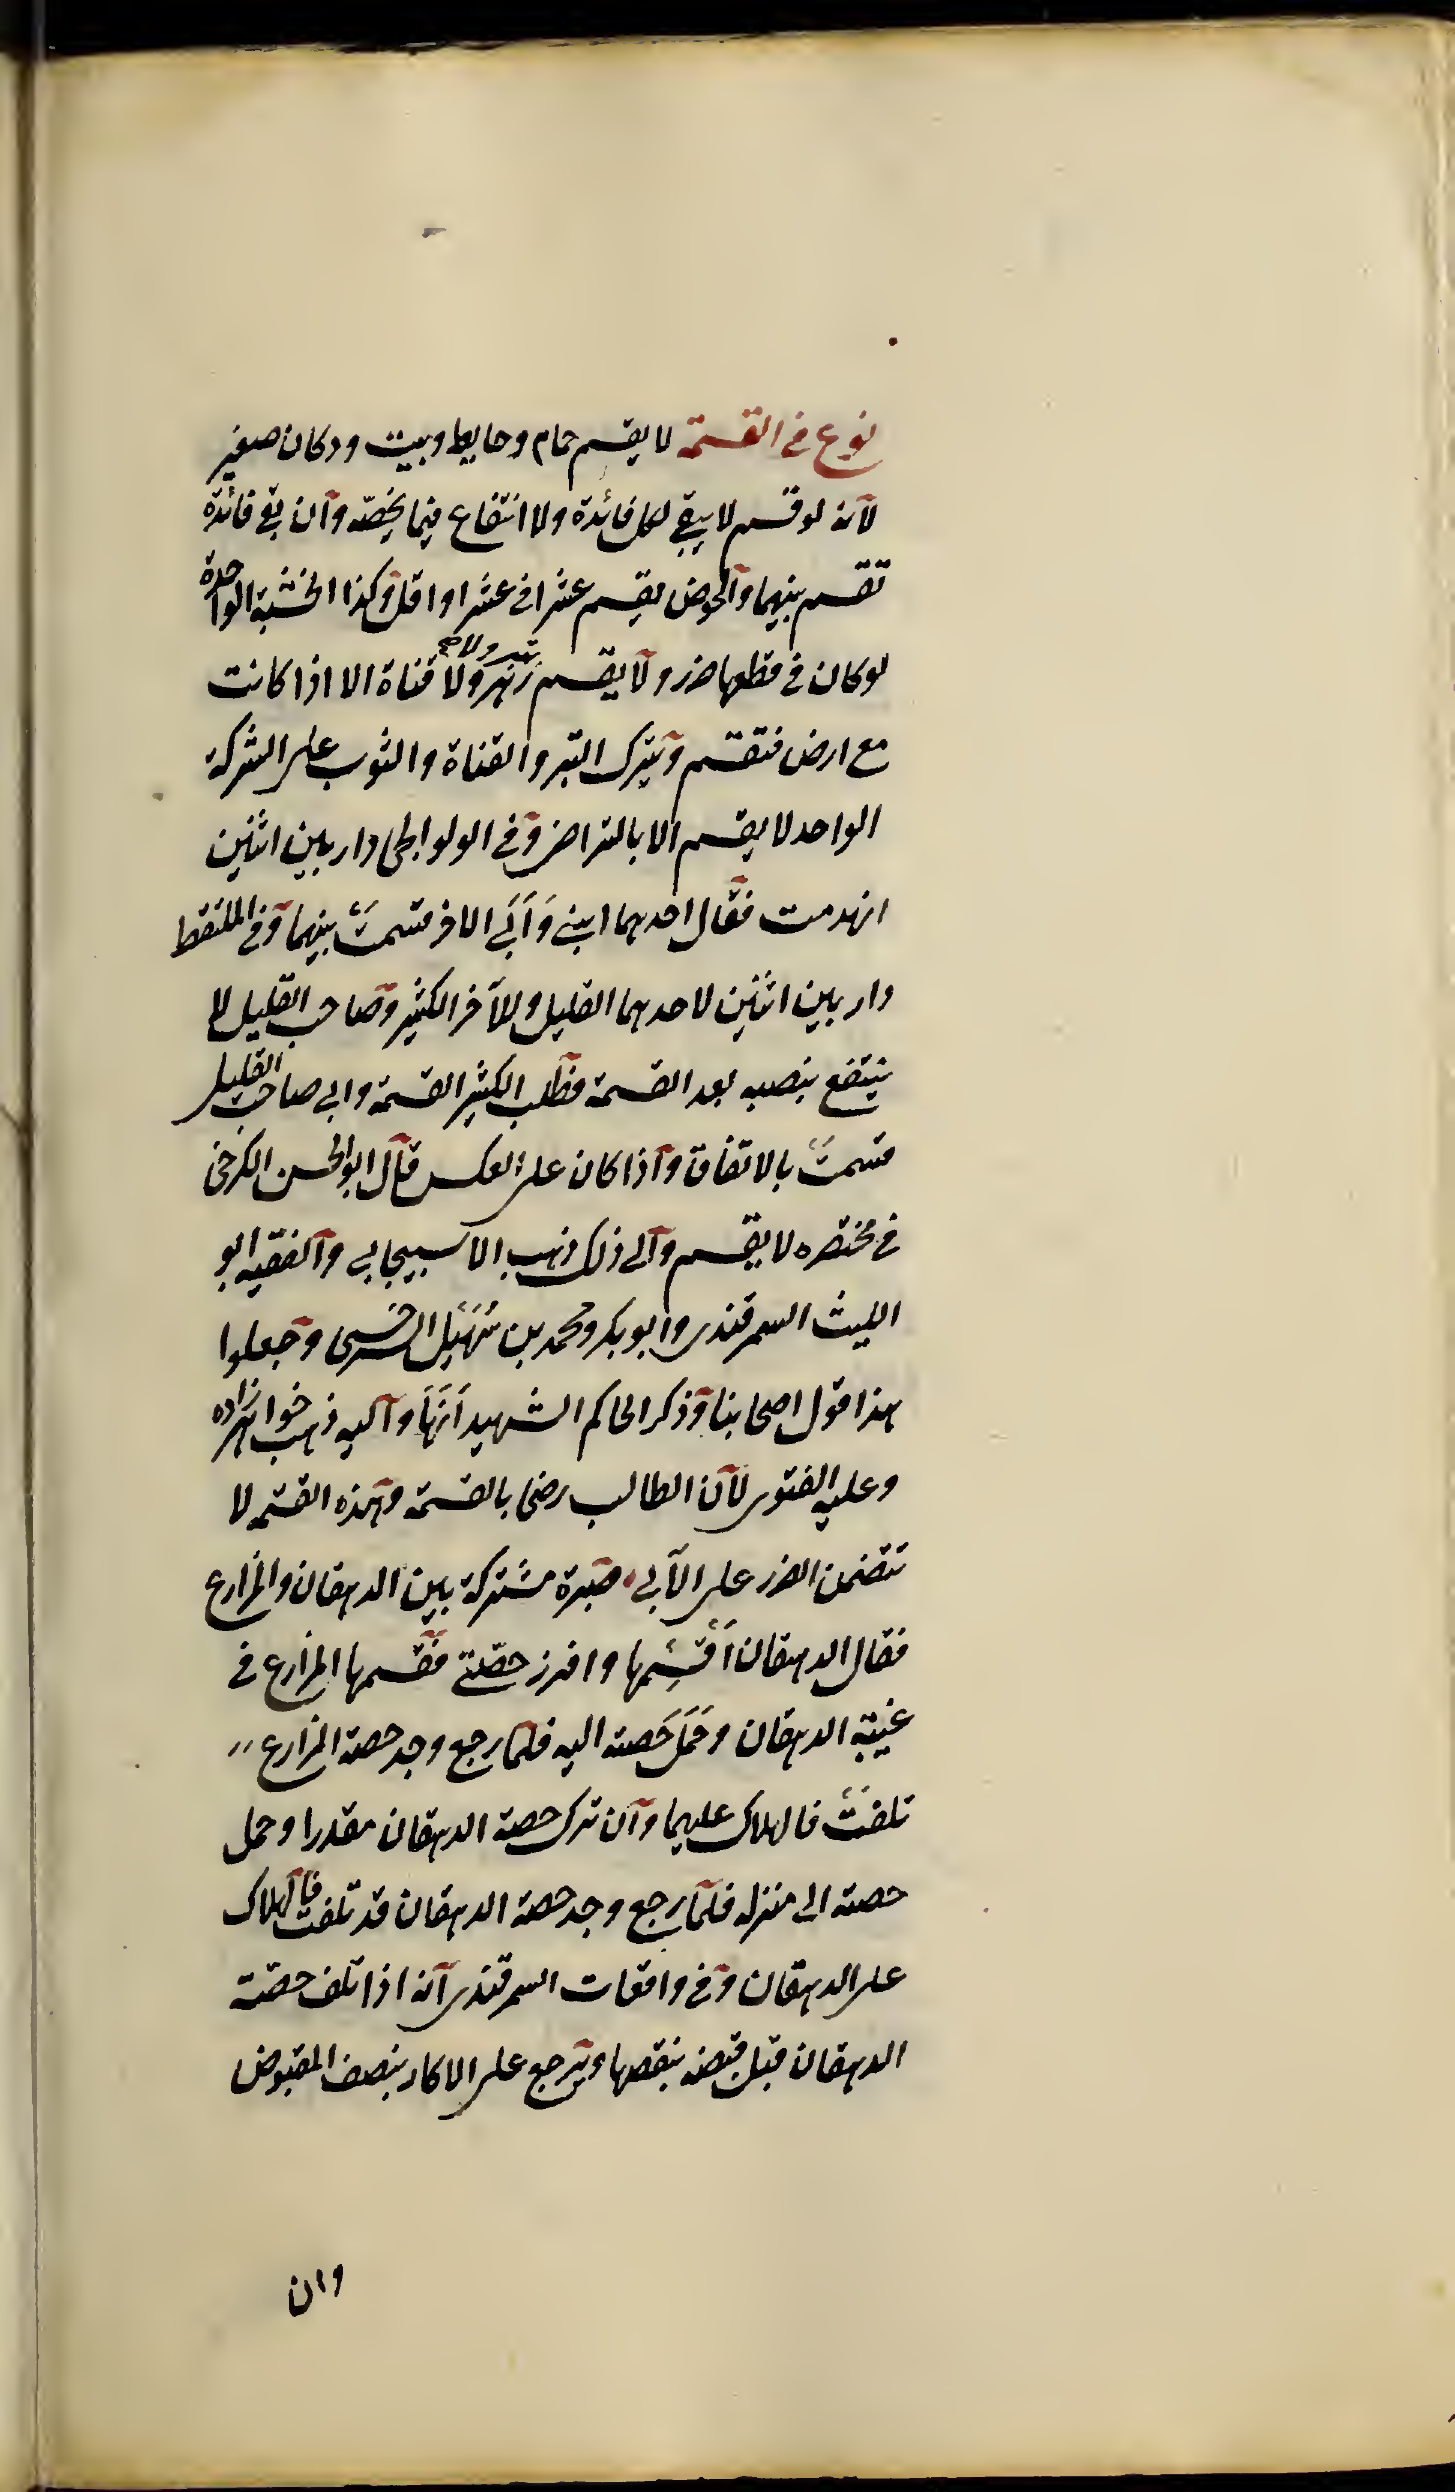 نوع في القسمة لا يقسم حمام وحايط وبيت ودكان صغير
لانه لو قسم لا يبقى لكل فائدة ولا انتفاع فيما يخصه وان بقي فائدة
تقسم بينهما والحوض يقسم عشرا في عشر او اقل وكذا الخشبة الواحدة
لو كان في قطعها ضرر ولا يقسم نهر ولا قناة الا اذا كانت
مع ارض فتقسم ويترك البئر والقناة والثوب على الشركة
الواحد لا يقسم الا بالتراضي وفي الولوالجي دار بين اثنين
انهدمت فقال احدهما ابني وَاَبَى الاخر قسمتْ بينهما وفي الملتقط
دار بين اثنين لاحدهما القليل وللآخر الكثير وصاحب القليل لا
ينتفع بنصيبه بعد القسمة فطلب الكثير القسمة وابى صاحب القليل
قسمتْ بالاتفاق واذا كان على العكس قال ابو الحسن الكرخي
في مختصره لا يقسم والى ذلك ذهب الاسبيجابي والفقيه ابو
الليث السمرقندي وابو بكر ومحمد بن سُهَيْل السرخسي وجعلوا
هذا قول اصحابنا وذكر الحاكم الشهيد اَنَهَا واليه ذهب خواهرزاده
وعليه الفتوى لان الطالب رضي بالقسمة وهذه القسمه لا
تتضمن الضرر على الآبي صبرة مشتركة بين الدهقان والمزارع
فقال الدهقان اَقْسِمْها وافرز حصّتي فقسمها المزارع في
غيبة الدهقان وحَمَلَ حَصته اليه فلما رجع وجد حصة المزارع
تلفتْ فالهلاك عليهما وان ترك حصة الدهقان مقدرا وحمل
حصته الى منزله فلما رجع وجد حصة الدهقان قد تلفت فالهلاك
على الدهقان وفي واقعات السمرقندي انه اذا تلف حصة
الدهقان قبل قبضه ينقصها ويرجع على الاكار بنصف المقبوض
وان